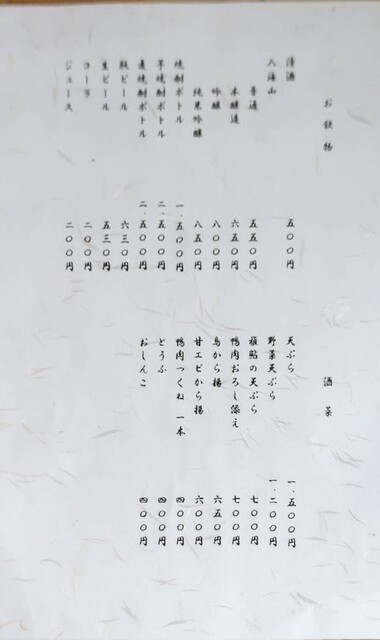 お飲物
清酒 五〇〇円
八海山
普通 五五〇円
本醸造 六五〇円
吟醸 八〇〇円
純米吟醸 八五〇円
焼酎ボトル 一、五〇〇円
芋焼酎ボトル 二、五〇〇円
麦焼酎ボトル 二、五〇〇円
瓶ビール 六三〇円
生ビール 五三〇円
コーラ 二〇〇円
ジュース 二〇〇円
酒菜
天ぷら 一、五〇〇円
野菜天ぷら 一、二〇〇円
稚鮎の天ぷら 七〇〇円
鴨肉おろし添え 七〇〇円
鳥から揚 六五〇円
甘エビから揚 六〇〇円
鴨肉つくね 一本 四〇〇円
とうふ 四〇〇円
おしんこ 四〇〇円